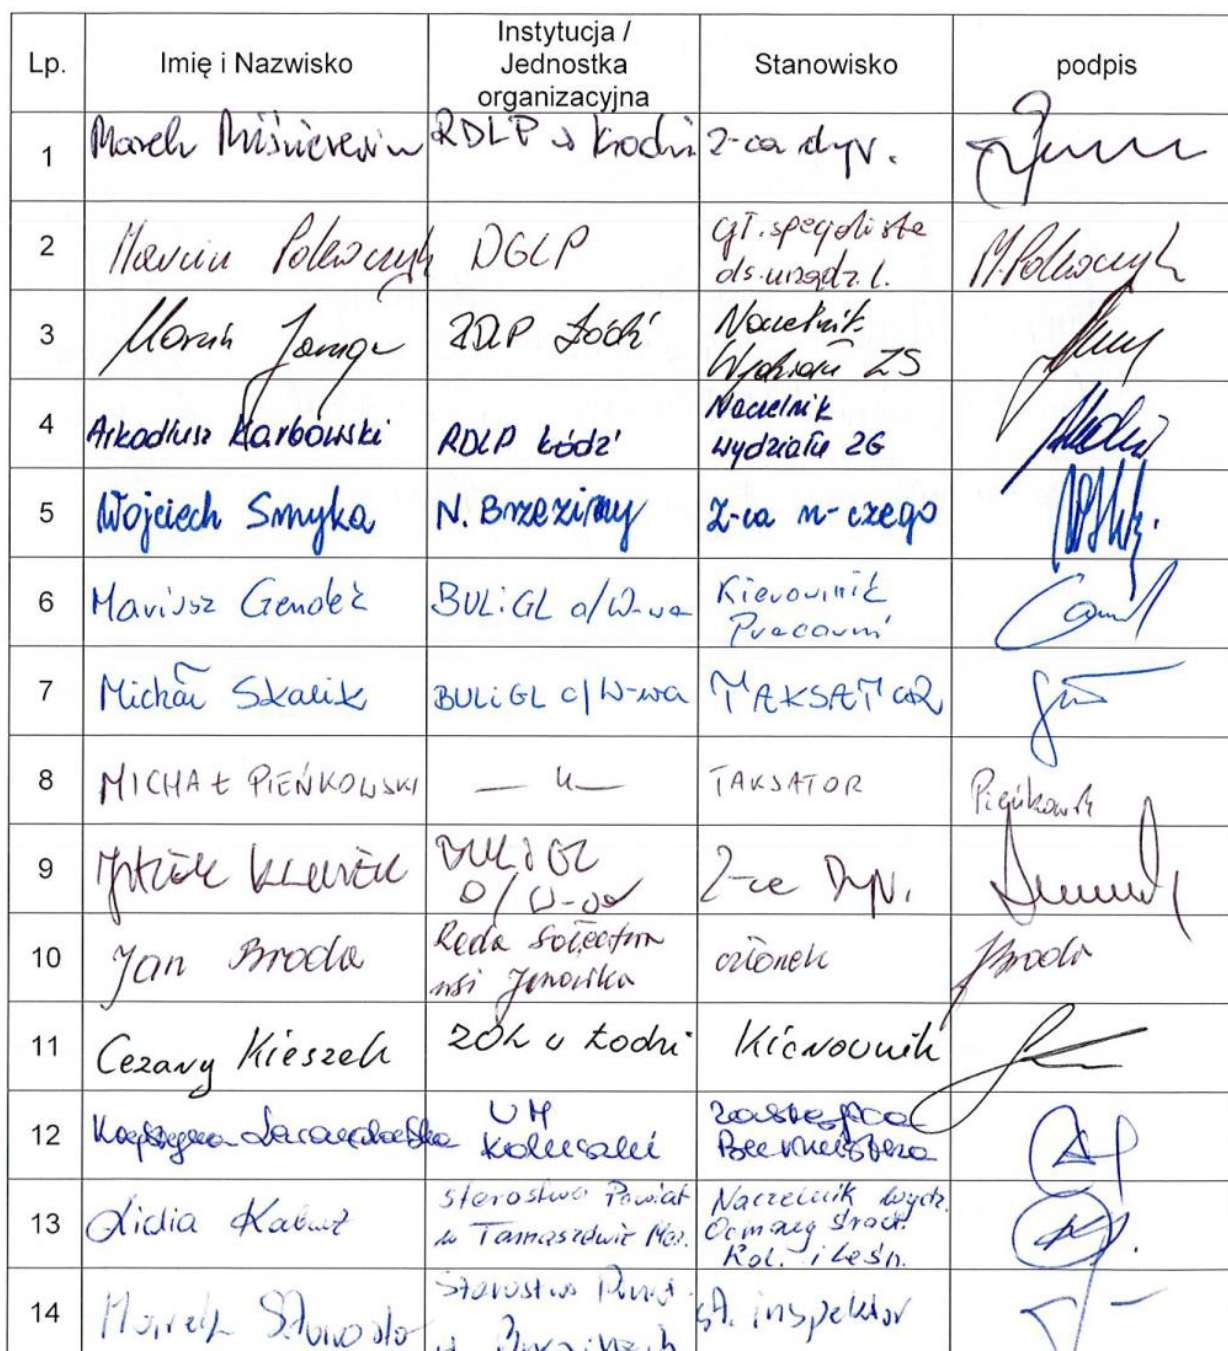 Lp.
Imię i Nazwisko
Instytucja /
Jednostka
organizacyjna
Stanowisko
podpis
1
Marek
RDLP w Łodzi
Z-ca dyr.
2
Marcin Polewczyk
DGLP
Gł. specjalista
ds. urządz. l.
M. Polewczyk
3
Marcin
RDLP Łódź
Naczelnik
Wydziału ZS
4
Arkadiusz Karbowski
RDLP Łódź
Naczelnik
wydziału ZG
5
Wojciech Smyka
N. Brzeziny
Z-ca n-czego
6
Mariusz
BULiGL o/W-wa
Kierownik
Pracowni
7
Michał Skalik
BULiGL o/W-wa
TAKSATOR
8
MICHAŁ PIEŃKOWSKI
— u —
TAKSATOR
Pieńkowski
9
BULiGL
O/W-wa
Z-ca Dyr.
10
Jan Broda
Rada Sołectwa
wsi Janówka
członek
JBroda
11
Cezary Kieszek
w Łodzi
Kierownik
12
UM
Koluszki
zastępca
Burmistrza
13
Lidia
Starostwo Powiat
w Tomaszowie Maz.
Naczelnik wydz.
Ochrony Środ.
Rol. i Leśn.
14
Marek
Starostwo
w Brzezinach
st. inspektor